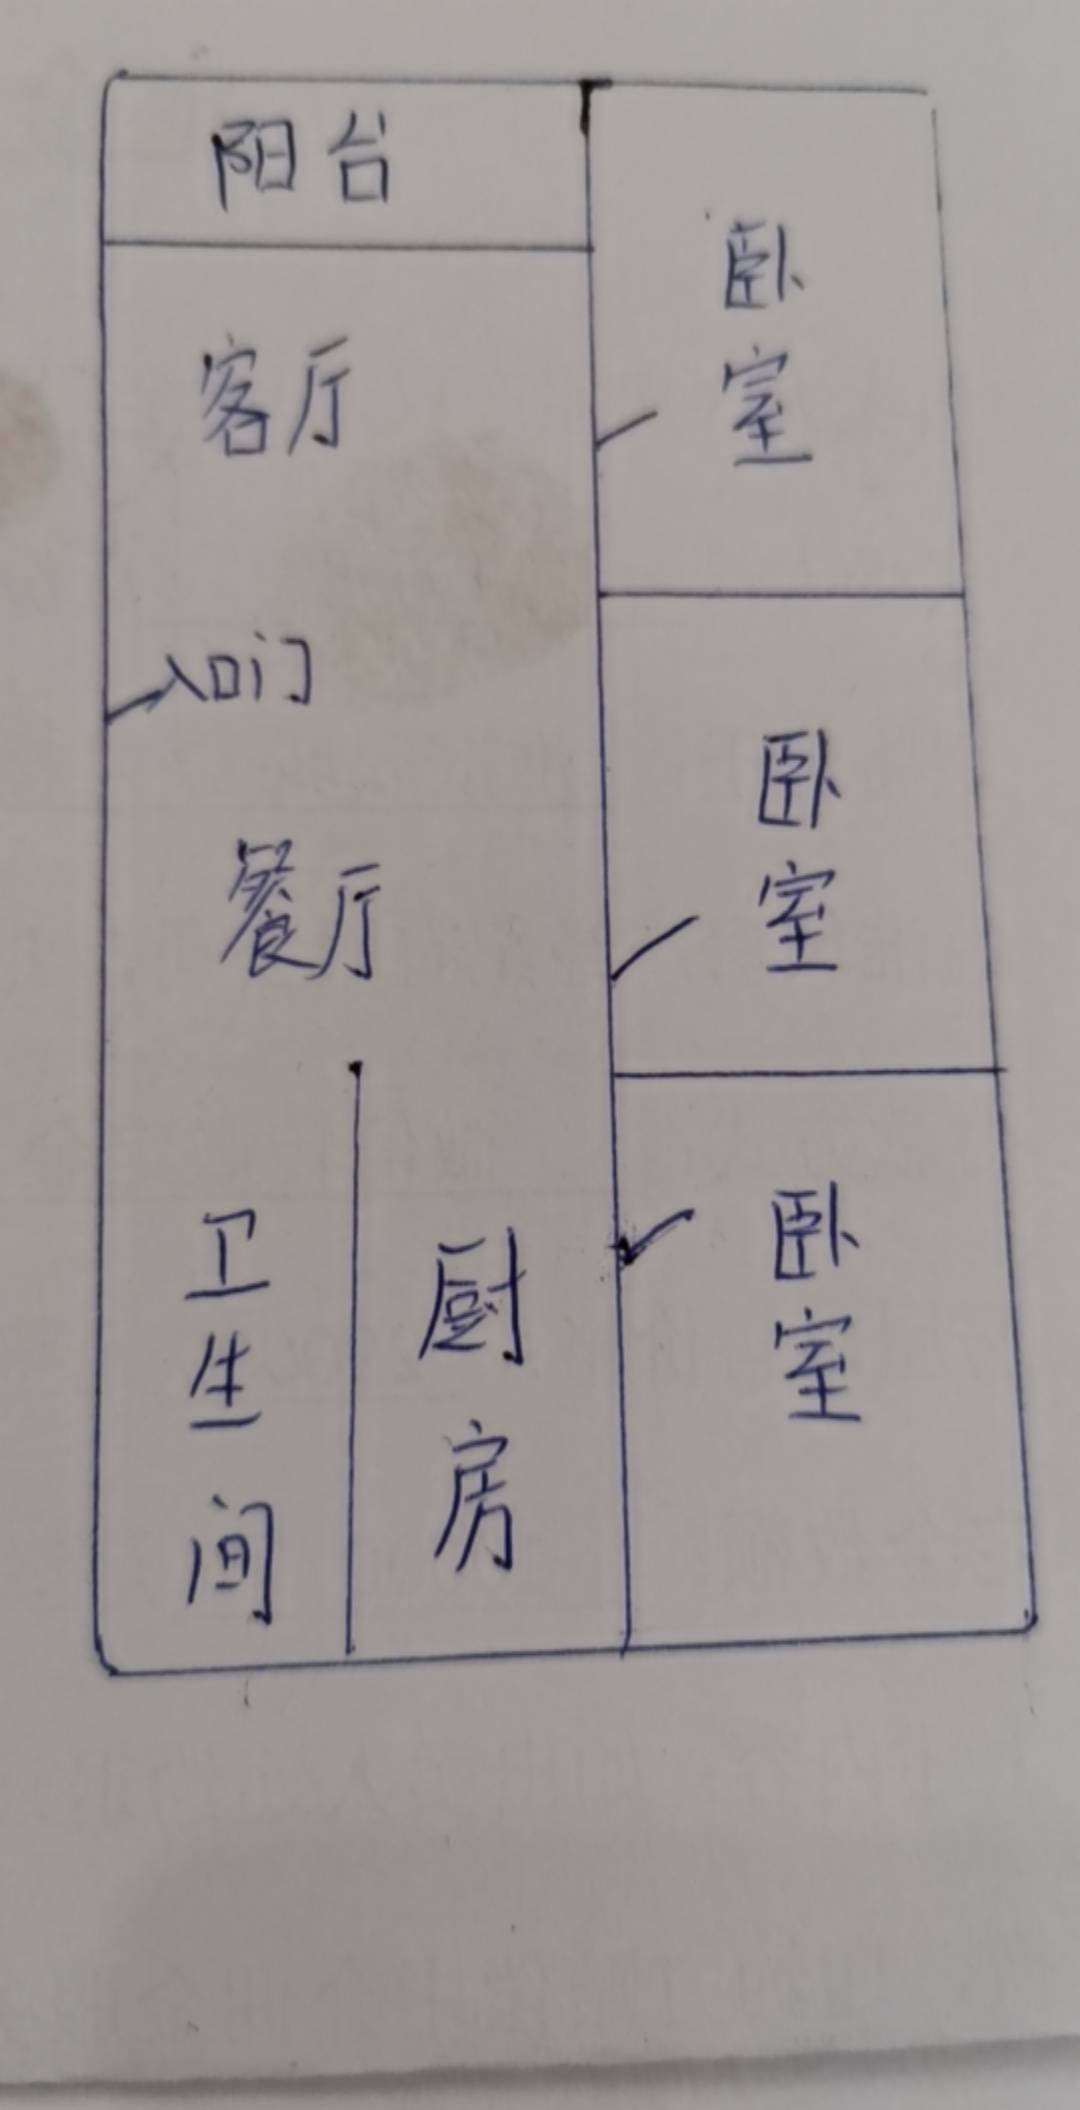 阳台
客厅
入口门
餐厅
卫生间
厨房
卧室
卧室
卧室